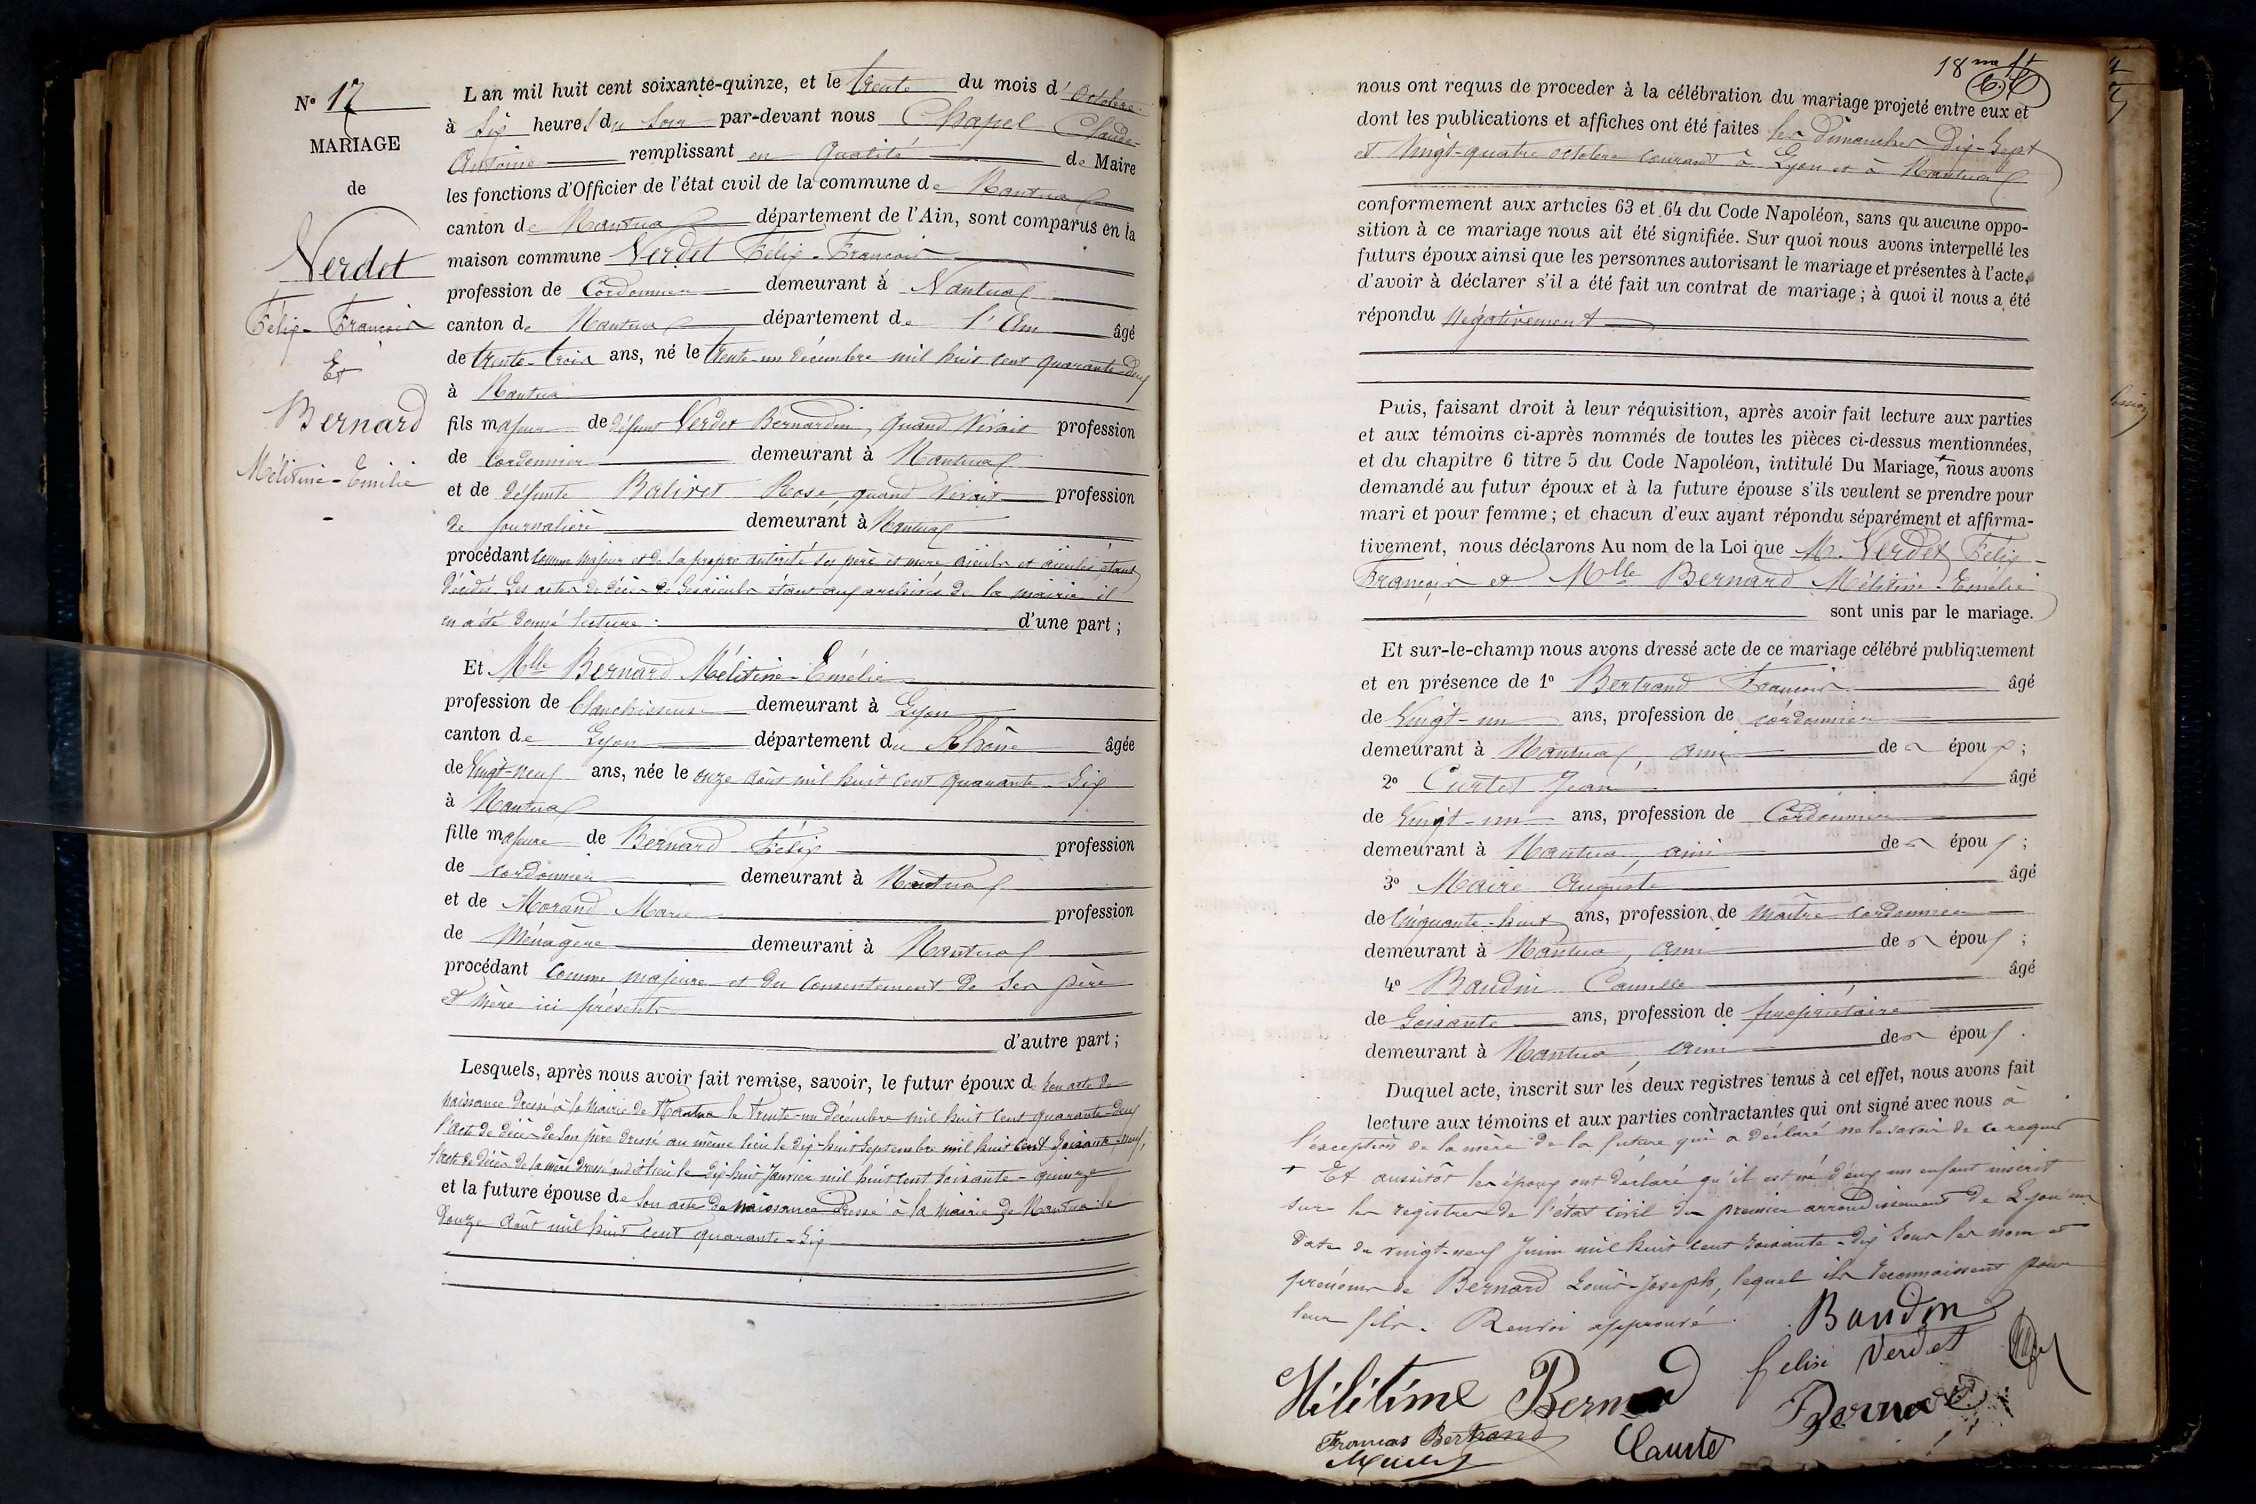 N° 17
MARIAGE
de
Verdet
Félix-François
Et
Bernard
Mélitine-Emélie
L'an mil huit cent soixante-quinze, et le trente du mois d'octobre
à six heures du soir par-devant nous Chapel Claude-
Antoine remplissant en qualité de Maire
les fonctions d'Officier de l'état civil de la commune de Nantua
canton de Nantua département de l'Ain, sont comparus en la
maison commune Verdet Félix-François
profession de Cordonnier demeurant à Nantua
canton de Nantua département de l'Ain âgé
de trente-trois ans, né le trente-un décembre mil huit cent quarante-deux
à Nantua
fils majeur de défunt Verdet Bernardin, quand vivait profession
de cordonnier demeurant à Nantua
et de défunte Balivet Rose, quand vivait profession
de journalière demeurant à Nantua
procédant comme majeur et de sa propre autorité ses père et mère aïeuls et aïeules étant
décédés Les actes de décès de ses aïeuls étant aux archives de la mairie il
en a été donné lecture. d'une part ;
Et Mlle Bernard Mélitine-Emélie
profession de blanchisseuse demeurant à Lyon
canton de Lyon département du Rhône âgée
de vingt-neuf ans, née le onze août mil huit cent quarante-six
à Nantua
fille majeure de Bernard Félix profession
de cordonnier demeurant à Nantua
et de Morand Marie profession
de Ménagère demeurant à Nantua
procédant comme majeure et du consentement de ses père
et mère ici présents
d'autre part ;
Lesquels, après nous avoir fait remise, savoir, le futur époux de son acte de
naissance dressé à la Mairie de Nantua le trente-un décembre mil huit cent quarante-deux
l'acte de décès de son père dressé au même lieu le dix-huit septembre mil huit cent soixante-neuf,
l'acte de décès de sa mère dressé audit lieu le dix-huit janvier mil huit cent soixante-quinze
et la future épouse de son acte de naissance dressé à la Mairie de Nantua le
douze août mil huit cent quarante-six
18me ft
nous ont requis de procéder à la célébration du mariage projeté entre eux et
dont les publications et affiches ont été faites les dimanches dix-sept
et vingt-quatre octobre courant à Lyon et à Nantua
conformément aux articles 63 et 64 du Code Napoléon, sans qu'aucune oppo-
sition à ce mariage nous ait été signifiée. Sur quoi nous avons interpellé les
futurs époux ainsi que les personnes autorisant le mariage et présentes à l'acte,
d'avoir à déclarer s'il a été fait un contrat de mariage ; à quoi il nous a été
répondu négativement
Puis, faisant droit à leur réquisition, après avoir fait lecture aux parties
et aux témoins ci-après nommés de toutes les pièces ci-dessus mentionnées,
et du chapitre 6 titre 5 du Code Napoléon, intitulé Du Mariage,+ nous avons
demandé au futur époux et à la future épouse s'ils veulent se prendre pour
mari et pour femme ; et chacun d'eux ayant répondu séparément et affirma-
tivement, nous déclarons Au nom de la Loi que M. Verdet Félix-
François et Mlle Bernard Mélitine-Emélie
sont unis par le mariage.
Et sur-le-champ nous avons dressé acte de ce mariage célébré publiquement
et en présence de 1° Bertrand François âgé
de vingt-un ans, profession de cordonnier
demeurant à Nantua, ami des époux ;
2° Curtet Jean âgé
de vingt-un ans, profession de Cordonnier
demeurant à Nantua, ami des époux ;
3° Maire Auguste âgé
de cinquante-huit ans, profession de maître cordonnier
demeurant à Nantua, ami des époux ;
4° Baudin Camille âgé
de soixante ans, profession de propriétaire
demeurant à Nantua, ami des époux.
Duquel acte, inscrit sur les deux registres tenus à cet effet, nous avons fait
lecture aux témoins et aux parties contractantes qui ont signé avec nous à
l'exception de la mère de la future qui a déclaré ne le savoir de ce requis
+ Et aussitôt les époux ont déclaré qu'il est né d'eux un enfant inscrit
sur les registres de l'état civil du premier arrondissement de Lyon en
date du vingt-neuf Juin mil huit cent soixante-dix sous les nom et
prénoms de Bernard Louis-Joseph, lequel ils reconnaissent pour
leur fils. Renvoi approuvé.
Baudin
felix Verdet
Mélitine Bernard
Bernard
François Bertrand